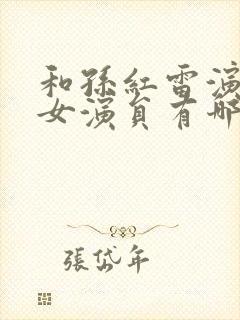 和孫紅雷演
女演員有哪
張岱年